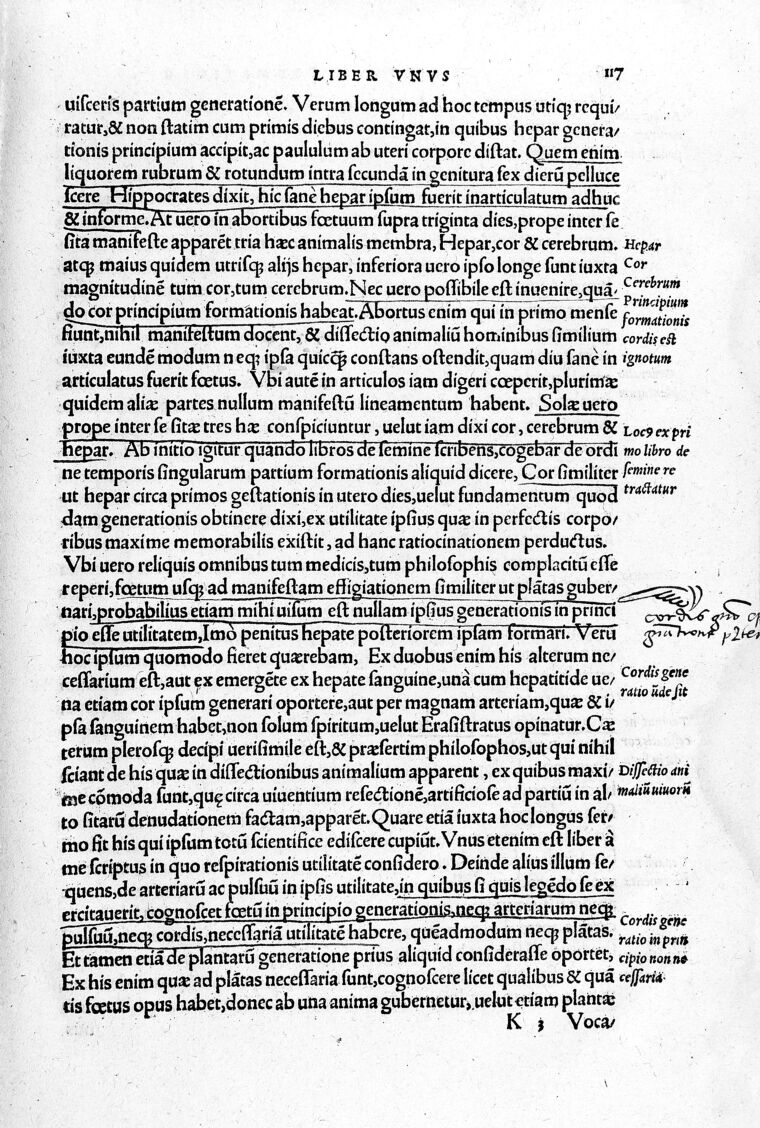 LIBER VNVS 117
uisceris partium generationē. Verum longum ad hoc tempus utiq; requi/
ratur,& non statim cum primis diebus contingat,in quibus hepar genera/
tionis principium accipit,ac paululum ab uteri corpore distat. Quem enim
liquorem rubrum & rotundum intra secundā in genitura sex dierū pelluce
scere Hippocrates dixit, hic sanè hepar ipsum fuerit inarticulatum adhuc
& informe. At uero in abortibus fœtuum supra triginta dies,prope inter se
sita manifeste apparēt tria hæc animalis membra, Hepar,cor & cerebrum.
Hepar
atq; maius quidem utrisq; alijs hepar, inferiora uero ipso longe sunt iuxta
Cor
magnitudinē tum cor,tum cerebrum. Nec uero possibile est inuenire,quā/
Cerebrum
do cor principium formationis habeat. Abortus enim qui in primo mense
Principium
formationis
fiunt,nihil manifestum docent, & dissectio animaliū hominibus similium
cordis est
iuxta eundē modum neq; ipsa quicq̄ constans ostendit,quam diu sanè in
ignotum
articulatus fuerit fœtus. Vbi autē in articulos iam digeri cœperit,plurimæ
quidem aliæ partes nullum manifestū lineamentum habent. Solæ uero
prope inter se sitæ tres hæ conspiciuntur, uelut iam dixi cor, cerebrum &
Locꝰ ex pri
hepar. Ab initio igitur quando libros de semine scribens,cogebar de ordi
mo libro de
ne temporis singularum partium formationis aliquid dicere, Cor similiter
semine re
ut hepar circa primos gestationis in utero dies,uelut fundamentum quod
tractatur
dam generationis obtinere dixi,ex utilitate ipsius quæ in perfectis corpo/
ribus maxime memorabilis existit, ad hanc ratiocinationem perductus.
Vbi uero reliquis omnibus tum medicis,tum philosophis complacitū esse
reperi,fœtum usq; ad manifestam effigiationem similiter ut plātas guber/
nari,probabilius etiam mihi uisum est nullam ipsius generationis in princi
cordis
pio esse utilitatem,Imò penitus hepate posteriorem ipsam formari. Verū
hoc ipsum quomodo fieret quærebam, Ex duobus enim his alterum ne/
cessarium est,aut ex emergēte ex hepate sanguine,unà cum hepatitide ue/
Cordis gene
na etiam cor ipsum generari oportere,aut per magnam arteriam,quæ & i/
ratio ūde sit
psa sanguinem habet,non solum spiritum,uelut Erasistratus opinatur. Cæ
terum plerosq; decipi uerisimile est,& præsertim philosophos,ut qui nihil
sciant de his quæ in dissectionibus animalium apparent, ex quibus maxi/
Dissectio ani
me cōmoda sunt,quę circa uiuentium resectionē,artificiose ad partiū in al/
maliū uiuorū
to sitarū denudationem factam,apparēt. Quare etiā iuxta hoc longus ser/
mo fit his qui ipsum totū scientifice ediscere cupiūt. Vnus etenim est liber à
me scriptus in quo respirationis utilitatē considero. Deinde alius illum se/
quens,de arteriarū ac pulsuū in ipsis utilitate,in quibus si quis legēdo se ex
ercitauerit, cognoscet fœtū in principio generationis,neq; arteriarum neq;
Cordis gene
pulsuū,neq; cordis,necessariā utilitatē habere, quēadmodum neq; plātas.
ratio in prin
Et tamen etiā de plantarū generatione prius aliquid considerasse oportet,
cipio non ne
Ex his enim quæ ad plātas necessaria sunt,cognoscere licet qualibus & quā
cessaria.
tis fœtus opus habet,donec ab una anima gubernetur, uelut etiam plantæ
K 3 Voca/